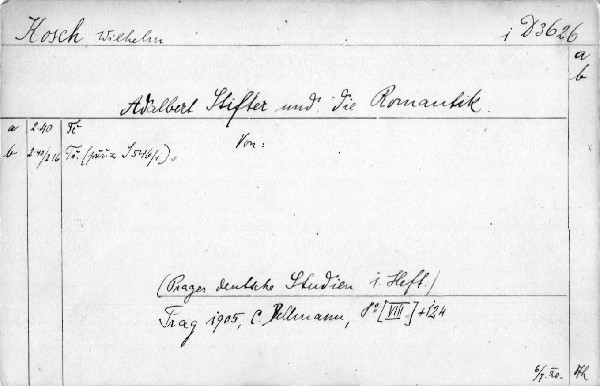 Kosch, Wilhelm i D3626
a
b
Adalbert Stifter und die Romantik.
a 240 Tč
Von:
b 240/216 Tč.
(Prager deutsche Studien 1. Heft.)
Prag 1905, C. Bellmann, 8° [VIII] + 124